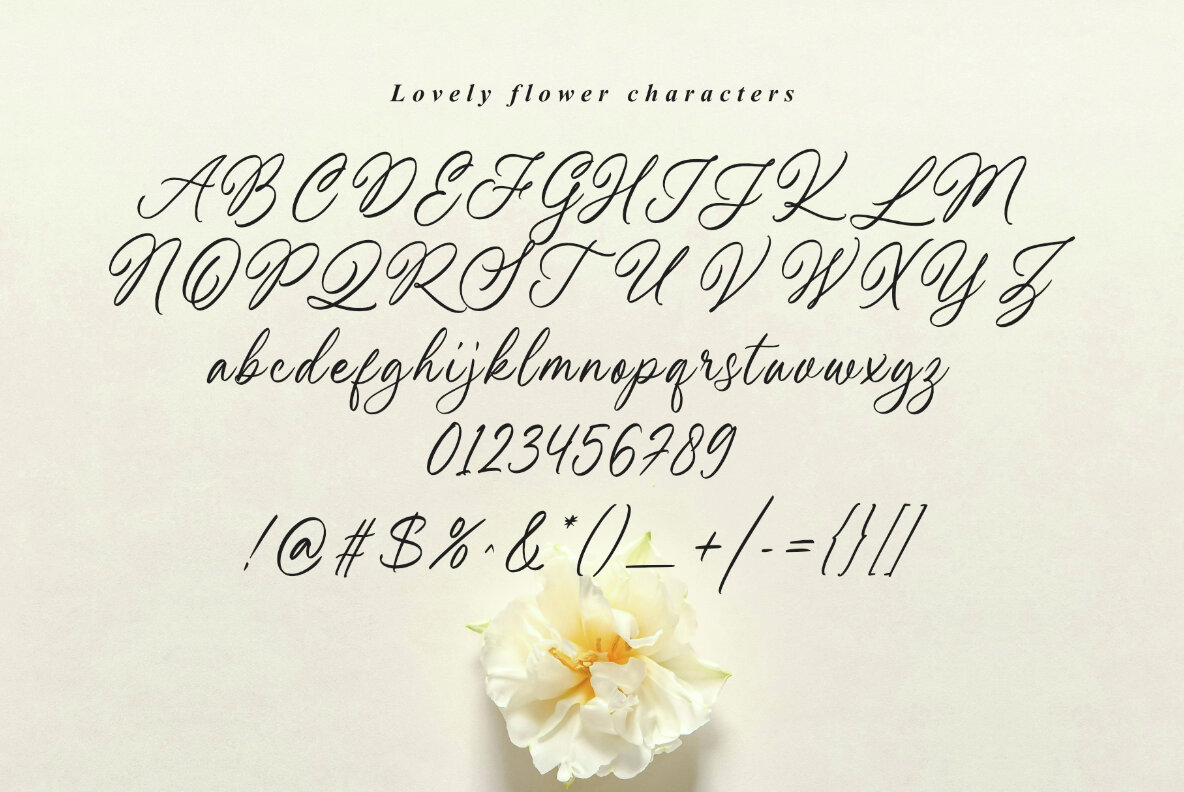 Lovely flower characters
A B C D E F G H I J K L M
N O P Q R S T U V W X Y Z
abcdefghijklmnopqrstuvwxyz
0123456789
!@#$%^&*()_+/-={}[]